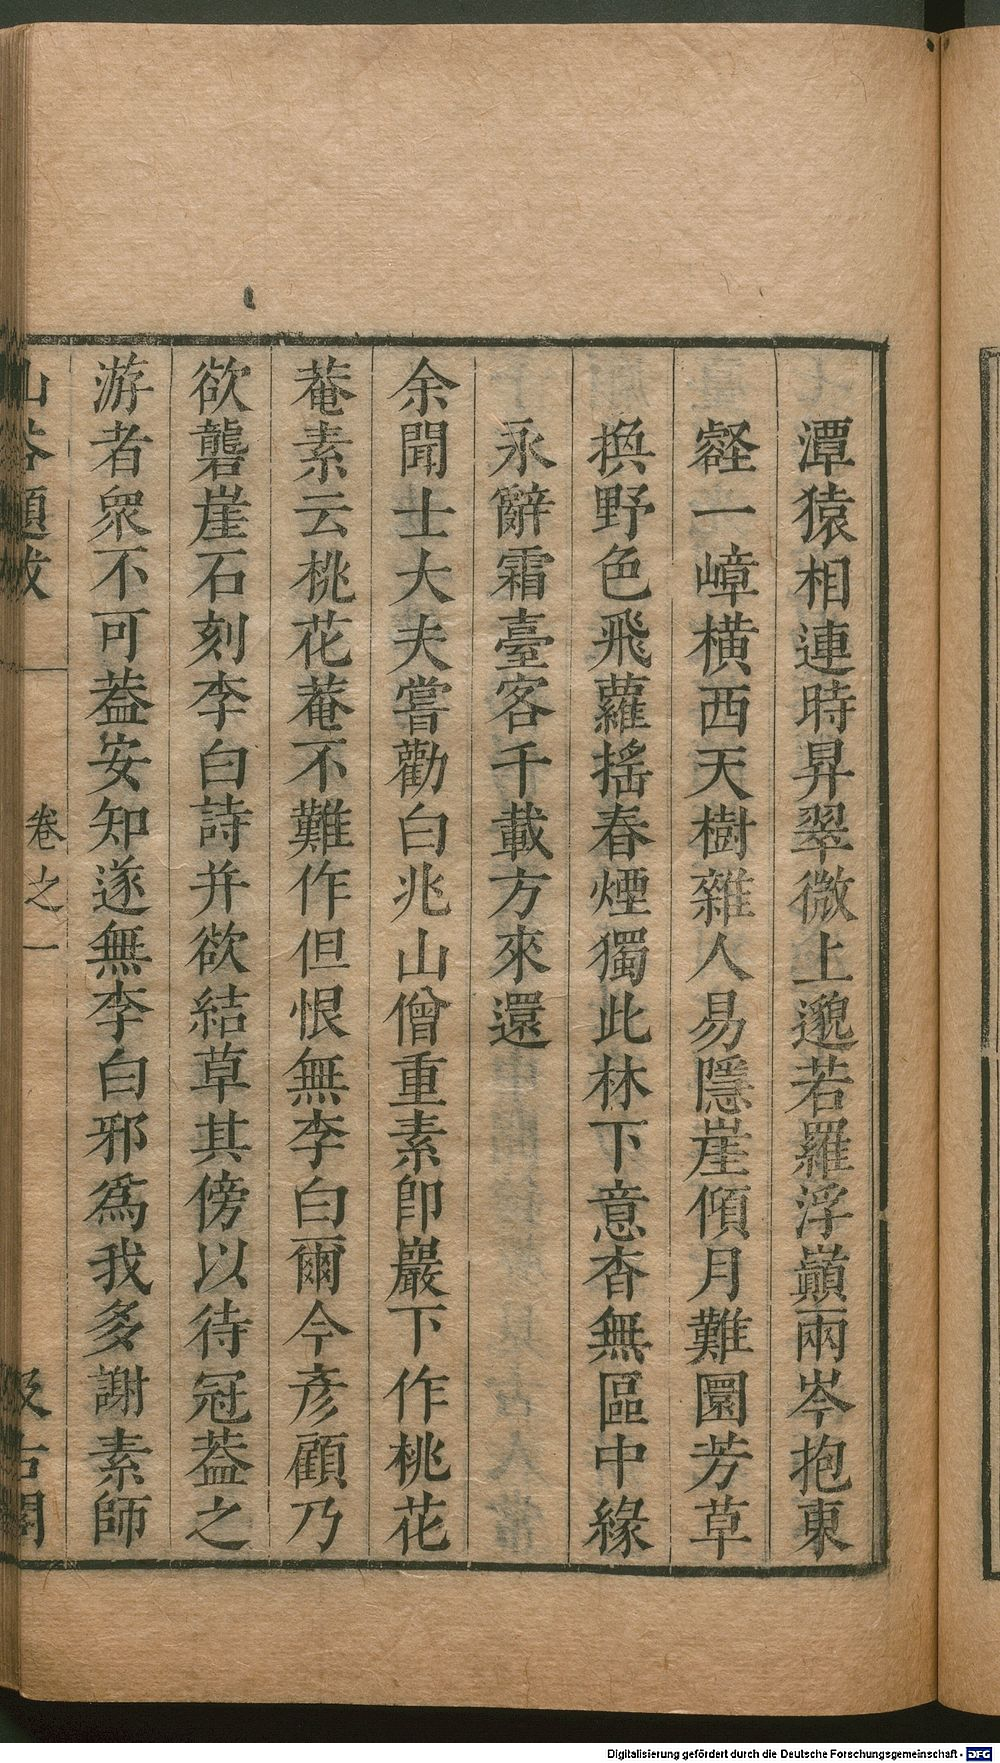 潭猿相連時昇翠微上邈若羅浮巔兩岑抱東
壑一嶂橫西天樹雜人易隱崖傾月難圓芳草
換野色飛蘿搖春煙獨此林下意杳無區中緣
永辭霜臺客千載方來還
余聞士大夫嘗勸白兆山僧重素卽巖下作桃花
菴素云桃花菴不難作但恨無李白爾今彥顧乃
欲礱崖石刻李白詩并欲結草其傍以待冠葢之
游者衆不可葢安知遂無李白邪爲我多謝素師
山谷題跋 卷之一 汲古閣
Digitalisierung gefördert durch die Deutsche Forschungsgemeinschaft - DFG